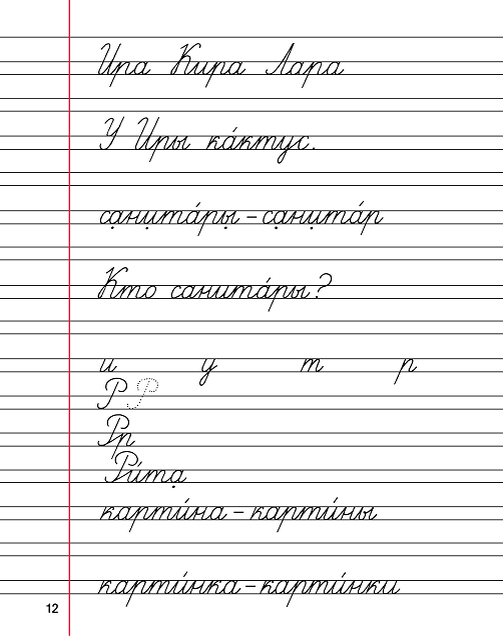 Ира Кира Лара
У Иры ка́ктус.
санита́ры – санита́р
Кто санита́ры?
и у т р
Р Р
Рр
Ри́та
карти́на – карти́ны
карти́нка – карти́нки
12